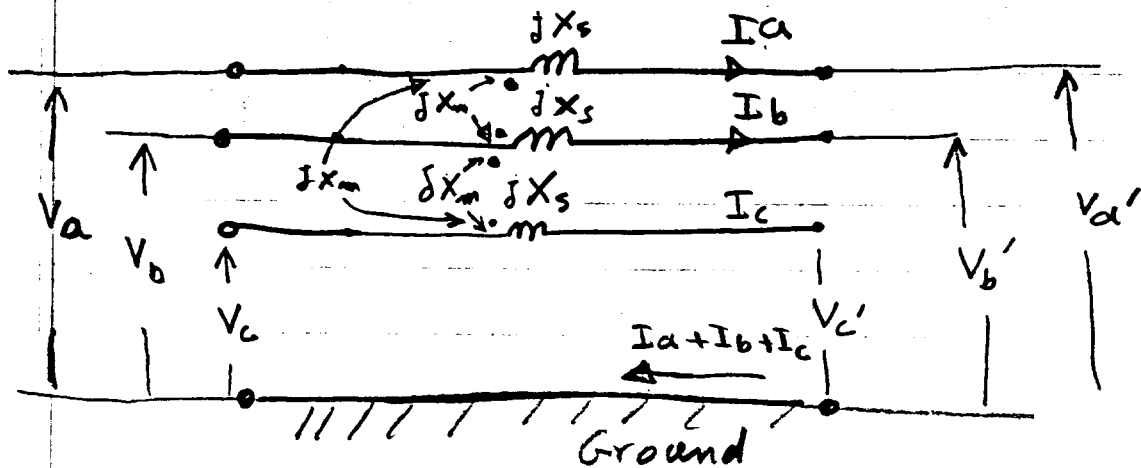 jXs Ia
jXm jXs Ib
jXm jXm jXs Ic
Va Vb Vc Vc' Vb' Va'
Ia+Ib+Ic
Ground